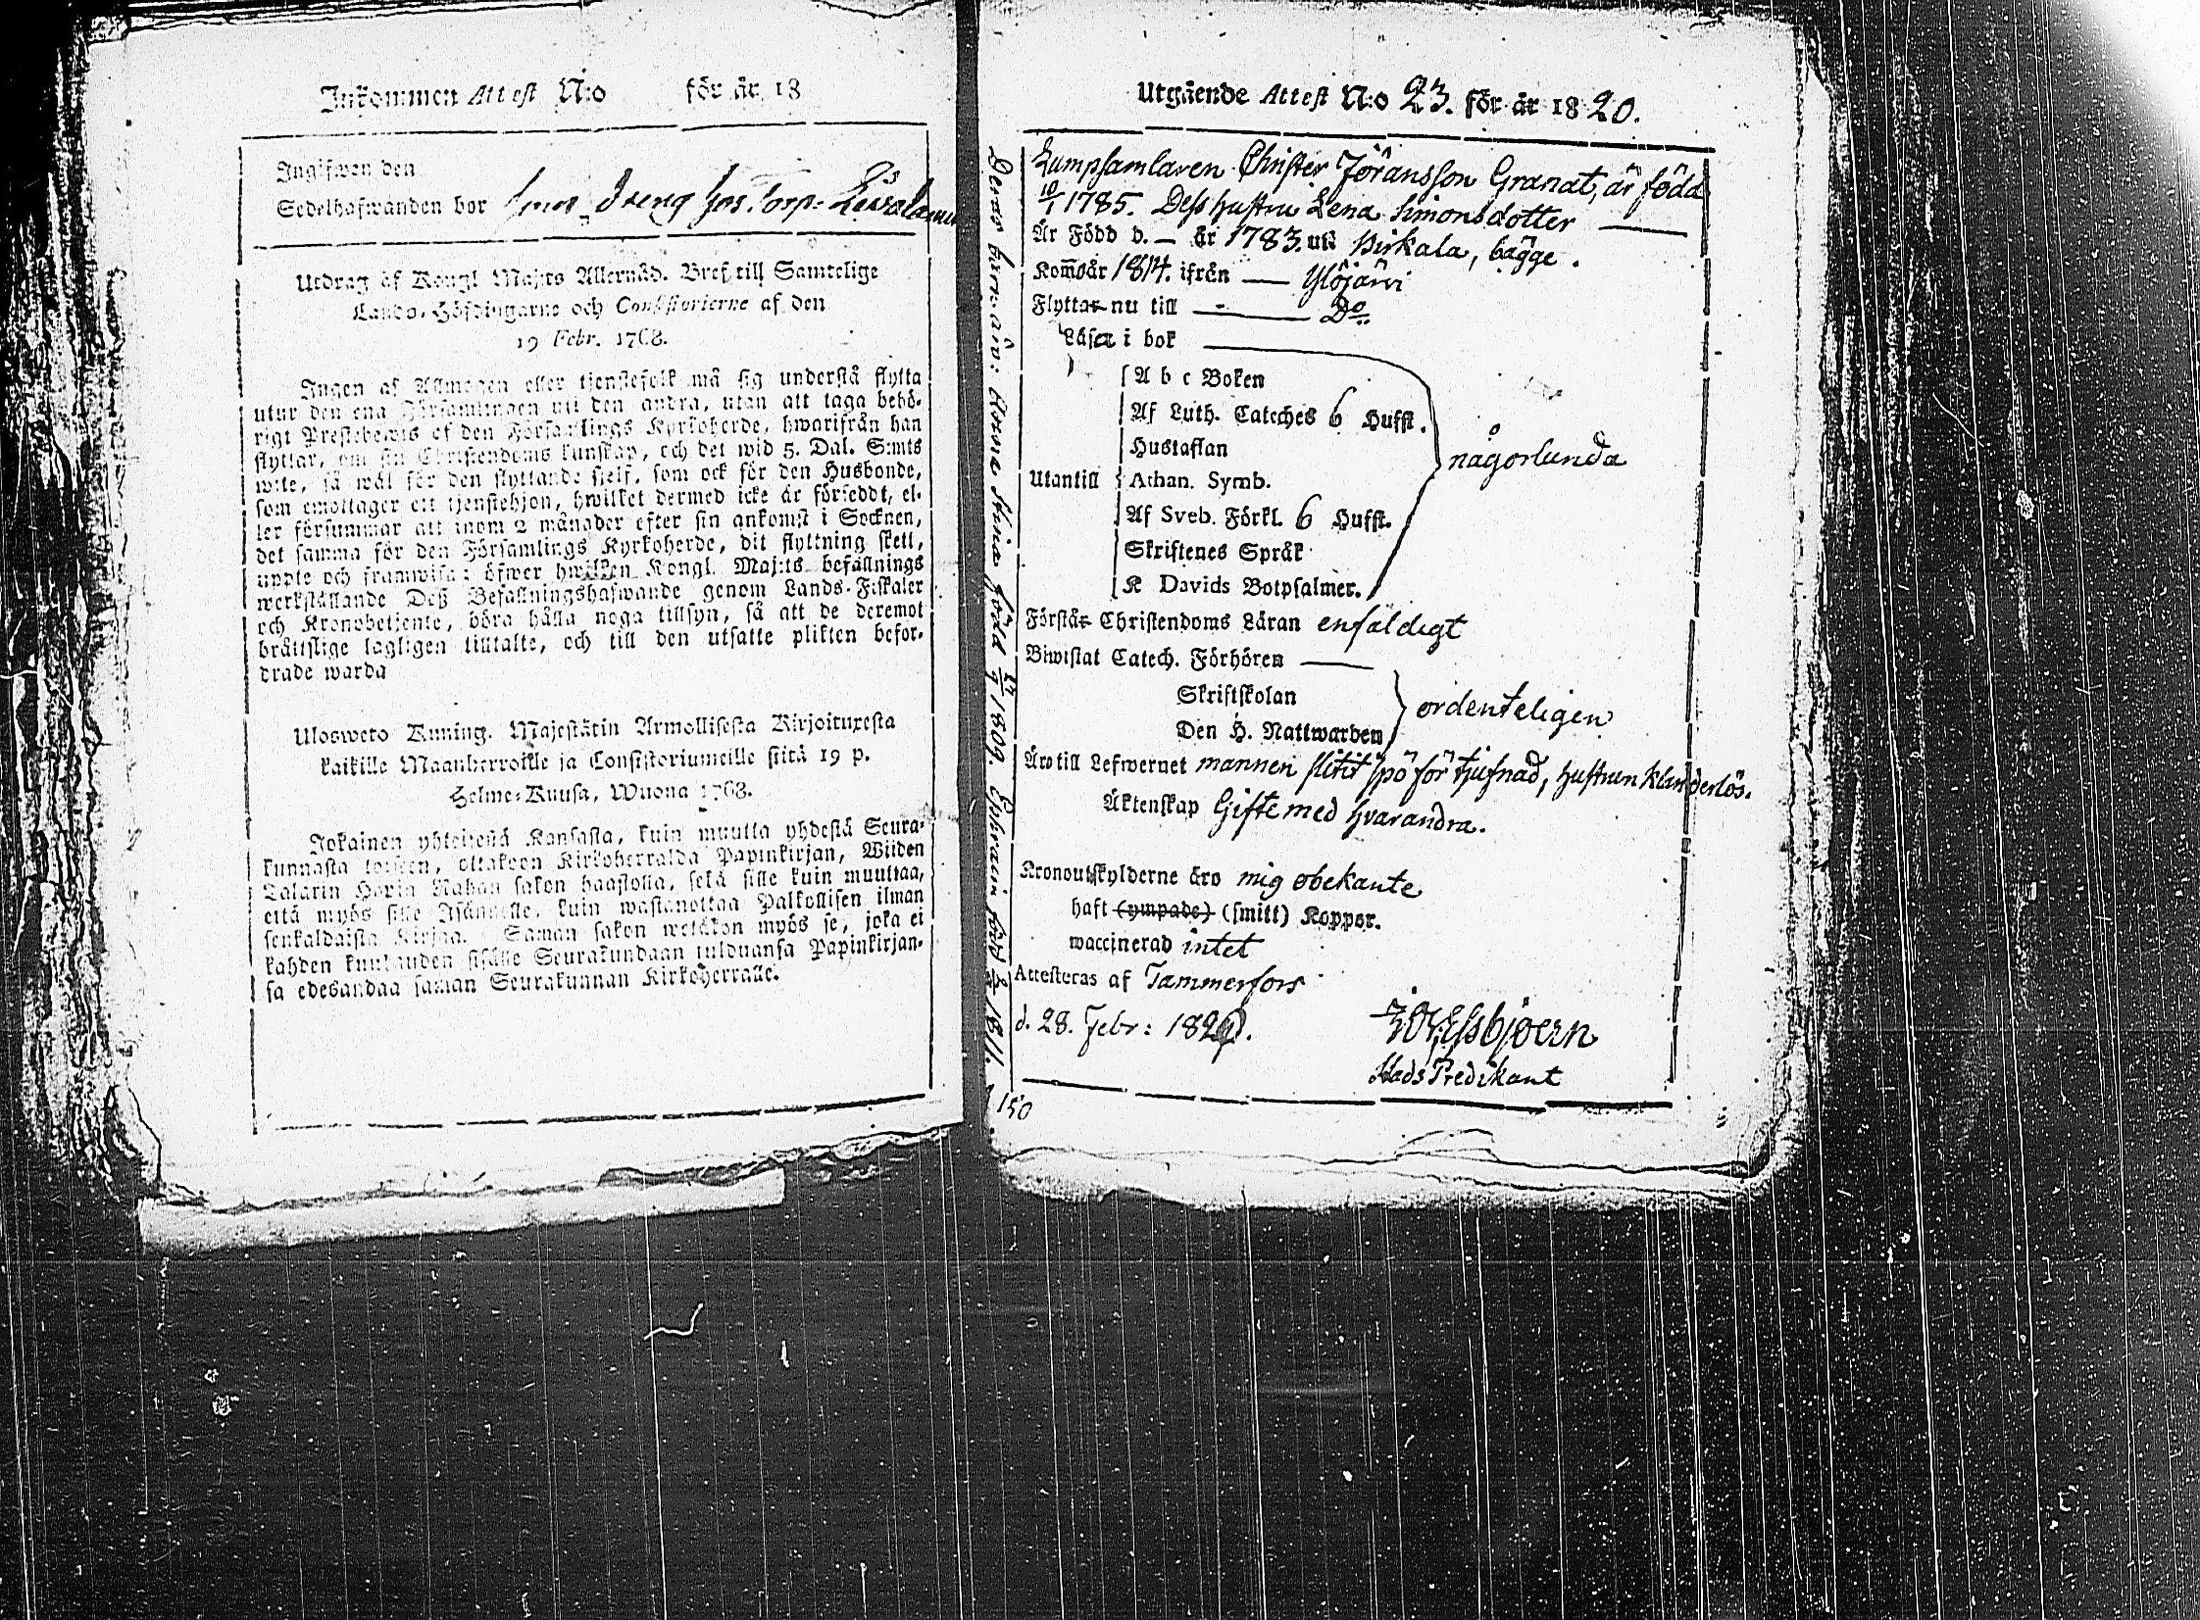 Inkommen Attest N:o för år 18
Ingifwen den
Sedelhafwanden bor
Utdrag af Kongl Maj:ts Allernåd. Bref till Samtelige
Lands-Höfdingarne och Consistorierne af den
19 Febr. 1768.
Ingen af Allmogen eller tjenstefolk må sig understå flytta
utur den ena Församlingen uti den andra, utan att taga behö-
rigt Prestebewis af den Församlings Kyrkoherde, hwarifrån han
flyttar, om sin Christendoms kunskap, och det wid 5. Dal. S:mts
wite, så wäl för den flyttande sjelf, som ock för den Husbonde,
som emottager ett tjenstehjon, hwilket dermed icke är försedt, el-
ler försummar att inom 2 månader efter sin ankomst i Socknen,
det samma för den Församlings Kyrkoherde, dit flyttning skett,
uppte och framwisa: öfwer hwilken Kongl. Maj:ts befallnings
werkställande Deß Befallningshafwande genom Lands-Fiskaler
och Kronobetjente, böra hålla noga tillsyn, så att de deremot
bråttslige lagligen tilltalte, och till den utsatte plikten befor-
drade warda
Ulosweto Kuning. Majestätin Armollisesta Kirjoituxesta
kaikille Maanherroille ja Consistoriumeille siitä 19 p.
Helme-Kuusa, Wuona 1768.
Jokainen yhteisestä Kansasta, kuin muutta yhdestä Seura-
kunnasta toiseen, ottakoon Kirkoherralda Papinkirjan, Wiiden
Talarin Hopia Rahan sakon haastolla, sekä sille kuin muuttaa,
että myös sille Isännelle, kuin wastanottaa Palkollisen ilman
senkaldaista Kirjaa. Saman sakon wetäkön myös se, joka ei
kahden kuukauden sisälle Seurakundaan tulduansa Papinkirjan-
sa edesandaa saman Seurakunnan Kirkoherralle.
Utgående Attest N:o 23. för år 1820.
Lumpsamlaren Christer Jöransson Granat, är född
10/1 1785. Dess hustru Lena Simonsdotter
Är Född d. — år 1783. uti Pirkala, bägge.
Kom̄o år 1814. ifrån — Ylöjärvi
Flyttar nu till — Do
Läsa i bok
A b c Boken
Af Luth. Cateches 6 Hufst.
Hustaflan
någorlunda
Utantill Athan. Symb.
Af Sveb. Förkl. 6 Hufst.
Skriftenes Språk
K Davids Botpsalmer.
Förstår Christendoms Läran enfaldigt
Biwistat Catech. Förhören
Skriftskolan
ordenteligen
Den H. Nattwarden
Äro till Lefwernet mannen slitit spö för tjufnad, hustrun klanderlös.
Äktenskap Gifte med hvarandra.
Kronoutskylderne äro mig obekante
haft (ympade) (smitt) Koppor.
waccinerad intet
Attesteras af Tammerfors
d. 28. Febr: 1820.
Stads Predikant
150
Deras barn äro: Anna Stina född 1809. Ephraim född 1811.